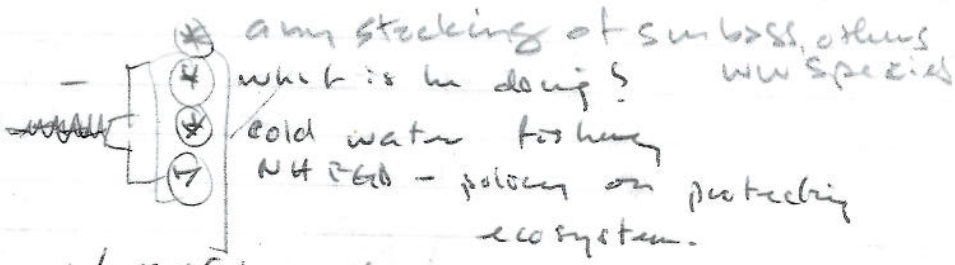 any stocking of smbass, others
ww species
what is he doing?
cold water fishery
NHF&GD - policy on protecting
ecosystem.